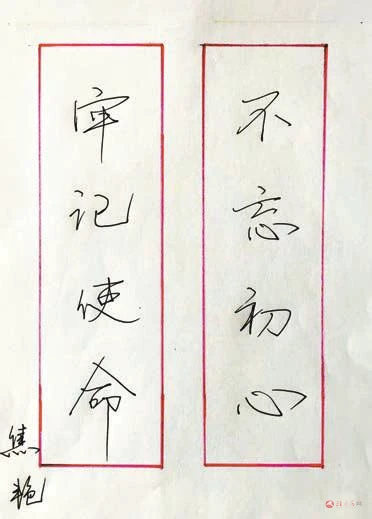 不忘初心
牢记使命
焦艳